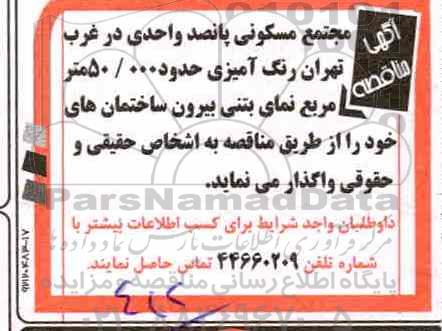 آگهی مناقصه
مجتمع مسکونی پانصد واحدی در غرب
تهران رنگ آمیزی حدود ۵۰/۰۰۰متر
مربع نمای بتنی بیرون ساختمان های
خود را از طریق مناقصه به اشخاص حقیقی و
حقوقی واگذار می نماید.
داوطلبان واجد شرایط برای کسب اطلاعات بیشتر با
شماره تلفن ۴۴۶۶۰۲۰۹ تماس حاصل نمایند.
ParsNamadData
پایگاه اطلاع رسانی مناقصه و مزایده